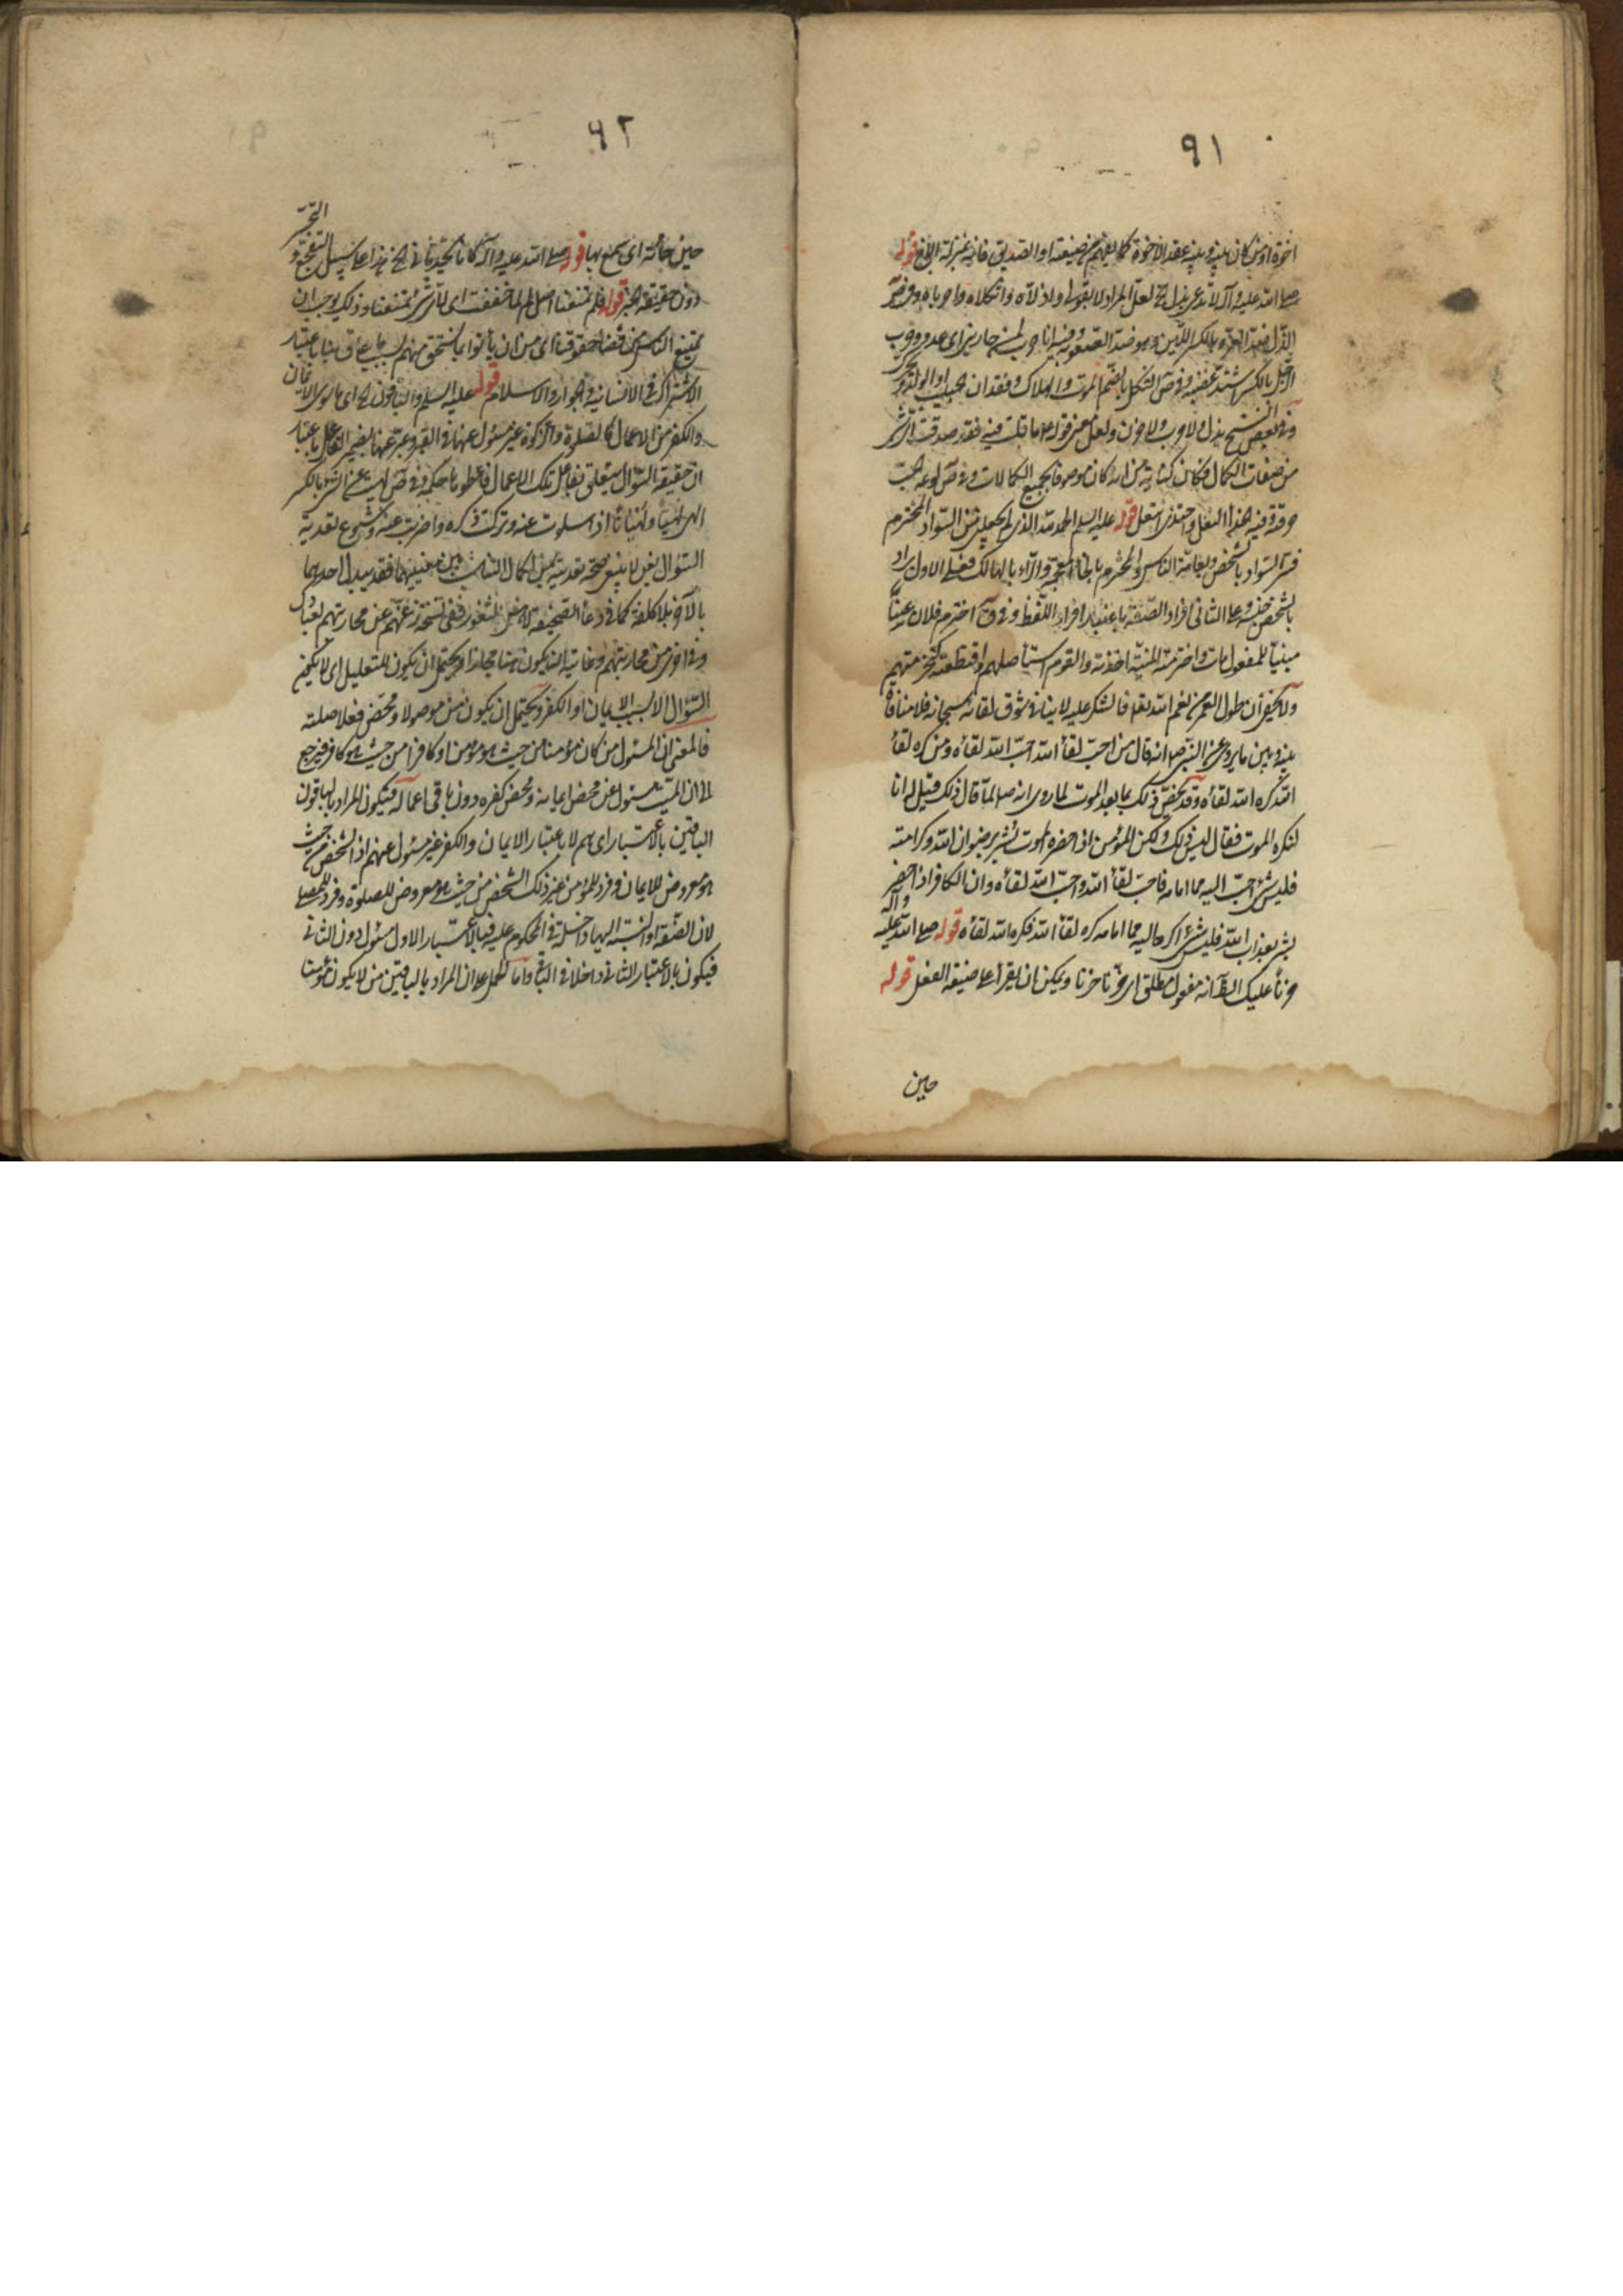 ٩١
اخوة او من كان بينه و بينه عقد الاخوة كما يفهم من صيغته او الصديق فانه بمنزلة الاخ قوله
صلى الله عليه وآله لا تدع بذل الخ لعل المراد لا تقولوا واذلاه واثكلاه واحرباه
الذل ضد العزة بالكسر اللين وهو ضد الصعوبة وفيه انا حرب لمن حاربني اى عدو وحرب
الرجل بالكسر اشتد غضبه وفى ص الثكل بالضم الموت والهلاك وفقدان الحبيب او الولد
وفى بعض النسخ بذل ولا حرب ولا حزن ولعل معنى قوله ما قلت فيه فقد صدقت
من صفات الكمال فكان كناية من انه كان موصوفا بجميع الكمالات وفى ص لوعة الحب
حرقته فيه هذا الفعل قوله عليه السلم الحمد لله الذى لم يجعلنى من السواد المخترم
فسر السواد بالشخص وبعامة الناس والمخترم بالخاء المعجمة والراء بالهالك فعلى الاول يراد
بالشخص جنسه وعلى الثانى افراد الصفة باعتبار افراد اللفظ وفى ق اخترم فلان عنا
مبنيا للمفعول مات واخترمته المنية اخذته والقوم استأصلهم واقتطعتهم كتخرمتهم
ولا يخفى ان طول العمر من نعم الله تعالى فالشكر عليه لا ينافى شوق لقائه سبحانه فلا منافاة
بينه وبين ما يروى عن النبى ص انه قال من احب لقاء الله احب الله لقاءه ومن كره لقاء
الله كره الله لقاءه وقد يخص ذلك بما بعد الموت لما روى انه ص لما قال ذلك قيل له انا
لنكره الموت فقال ليس ذلك ولكن المؤمن اذا حضره الموت بشر برضوان الله وكرامته
فليس شئ احب اليه مما امامه فاحب لقاء الله واحب الله لقاءه وان الكافر اذا حضر
بشر بعذاب الله فليس شئ اكره اليه مما امامه كره لقاء الله فكره الله لقاءه قوله صلى الله عليه وآله
حزنا عليك الظ انه مفعول مطلق اى حزنا حزنا ويمكن ان يقرأ على صيغة الفعل قوله
حين
٩٢
حين خاتمة اى سمع بها قوله صلى الله عليه وآله كانا الخ هذا على سبيل التفجع و التحسر
دون حقيقة الخبر قوله فلم تنتفنا اصل لم لما خففت اى لاى شئ وذلك يوجب ان
يمتنع الناس من قضاء حقوقنا اى من ان يأتوا بما يستحق منهم باعتبار
الاشتراك فى الانسانية والجوار والاسلام قوله عليه السلم والباقون الخ اى ما سوى الايمان
والكفر من الاعمال كالصلوة والزكوة غير مسئول عنها فى القبر وعبر عنها بضمير العاقل باعتبار
ان حقيقة السؤال يتعلق بفاعل تلك الاعمال فاعطوها حكمه وفى ص لهيت عن الشئ بالكسر
الهى لهيا ولهيانا اذا سلوت عنه وتركت ذكره واضربت عنه وشيوع تعدية
السؤال بعن لا يمنع صحة تعديته بمن لكمال التناسب بين معنييهما فقد يبدل احدهما
بالآخر بلا كلفة كما فى دعاء الصحيفة لاهل الثغور ففى نسخة عن محاربتهم
وفى اخرى من محاربتهم وغايته ان يكون هنا مجازا ويحتمل ان يكون للتعليل اى لا يكون
السؤال الا بسبب الايمان او الكفر ويحتمل ان يكون من موصولا ومحض فعلا صلته
فالمعنى ان المسئول من كان مؤمنا من حيث هو مؤمن او كافرا من حيث هو كافر فيرجع
الى ان الميت مسئول عن محض ايمانه ومحض كفره دون باقى اعماله فيكون المراد بالباقون
الباقين بالاعتبار اى هم لا باعتبار الايمان والكفر غير مسئول عنهم اذ الشخص من حيث
هو معروض للايمان وفرد للمؤمن غير ذلك الشخص من حيث هو معروض للصلوة وفرد للمصلى
لان الصفة او النسبة اليها داخلة فى المحكوم عليه فبالاعتبار الاول مسئول دون الثانى
فيكون بالاعتبار الثانى داخلا فى الباقى واما الحمل على ان المراد بالباقين من لا يكون مؤمنا